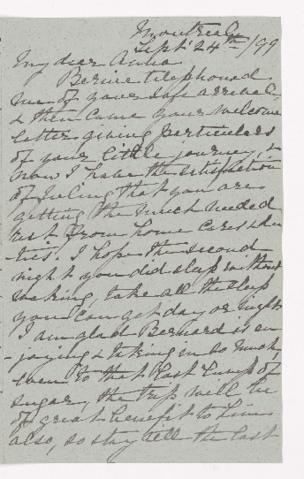 Montreal
Sept 24th /99
My dear Amelia
Bernie telephoned
me of your safe arrival,
& then came your welcome
letter giving particulars
of your little journey, &
now I have the satisfaction
of feeling that you are
getting the much needed
rest from home cares & du-
ties. I hope the second
night you did sleep without
waking, take all the sleep
you can get day or night
I am glad Bernard is en-
-joying & taking in so much,
even to the last lump of
sugar, the trip will be
of great benefit to him
also, so stay till the last